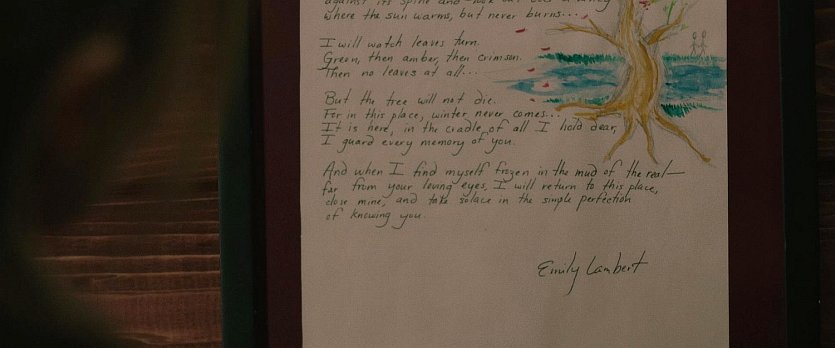 against its spine and look out over a valley
where the sun warms, but never burns...
I will watch leaves turn.
Green, then amber, then crimson.
Then no leaves at all...
But the tree will not die.
For in this place, winter never comes...
It is here, in the cradle of all I hold dear,
I guard every memory of you.
And when I find myself frozen in the mud of the real—
far from your loving eyes, I will return to this place,
close mine, and take solace in the simple perfection
of knowing you.
Emily Lambert